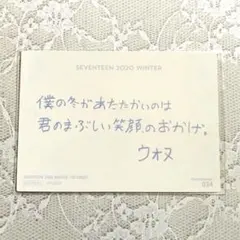 SEVENTEEN 2020 WINTER
僕の冬があたたかいのは
君のまぶしい笑顔のおかげ。
ウォヌ